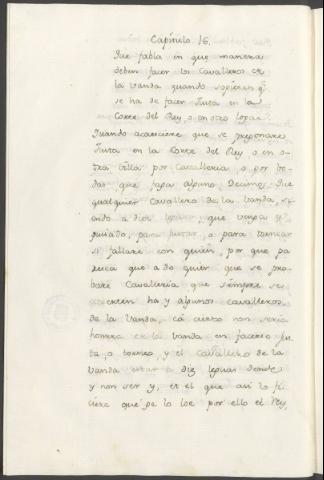 Capitulo 16.
Que fabla in que manera
deben facer los Cavalleros de
la Vanda quando sopieren q.e
se ha de facer Justa en la
Corte del Rey, o en otro logar.
Quando acaesciere que se pregonare
Justa en la Corte del Rey o en o-
tra Villa por Cavalleria, o por bo-
das que faga alguno, Decimos, Que
qualquier Cavallero de la Vanda, se-
endo a diez leguas, que venga y
guisado, para justar, o para tornear
si fallare con quien, por que pa
rezca que a do quier que se pro-
bare Cavalleria que siempre se
acierten ha y algunos cavalleros
de la Vanda, cá cierto non seria
honrra de la Vanda en facerse Jus
ta, o torneo, y el cavallero de la
Vanda estar a diez leguas dende
y non ser y, et el que asi lo fi
ciere que se lo loe por ello el Rey,